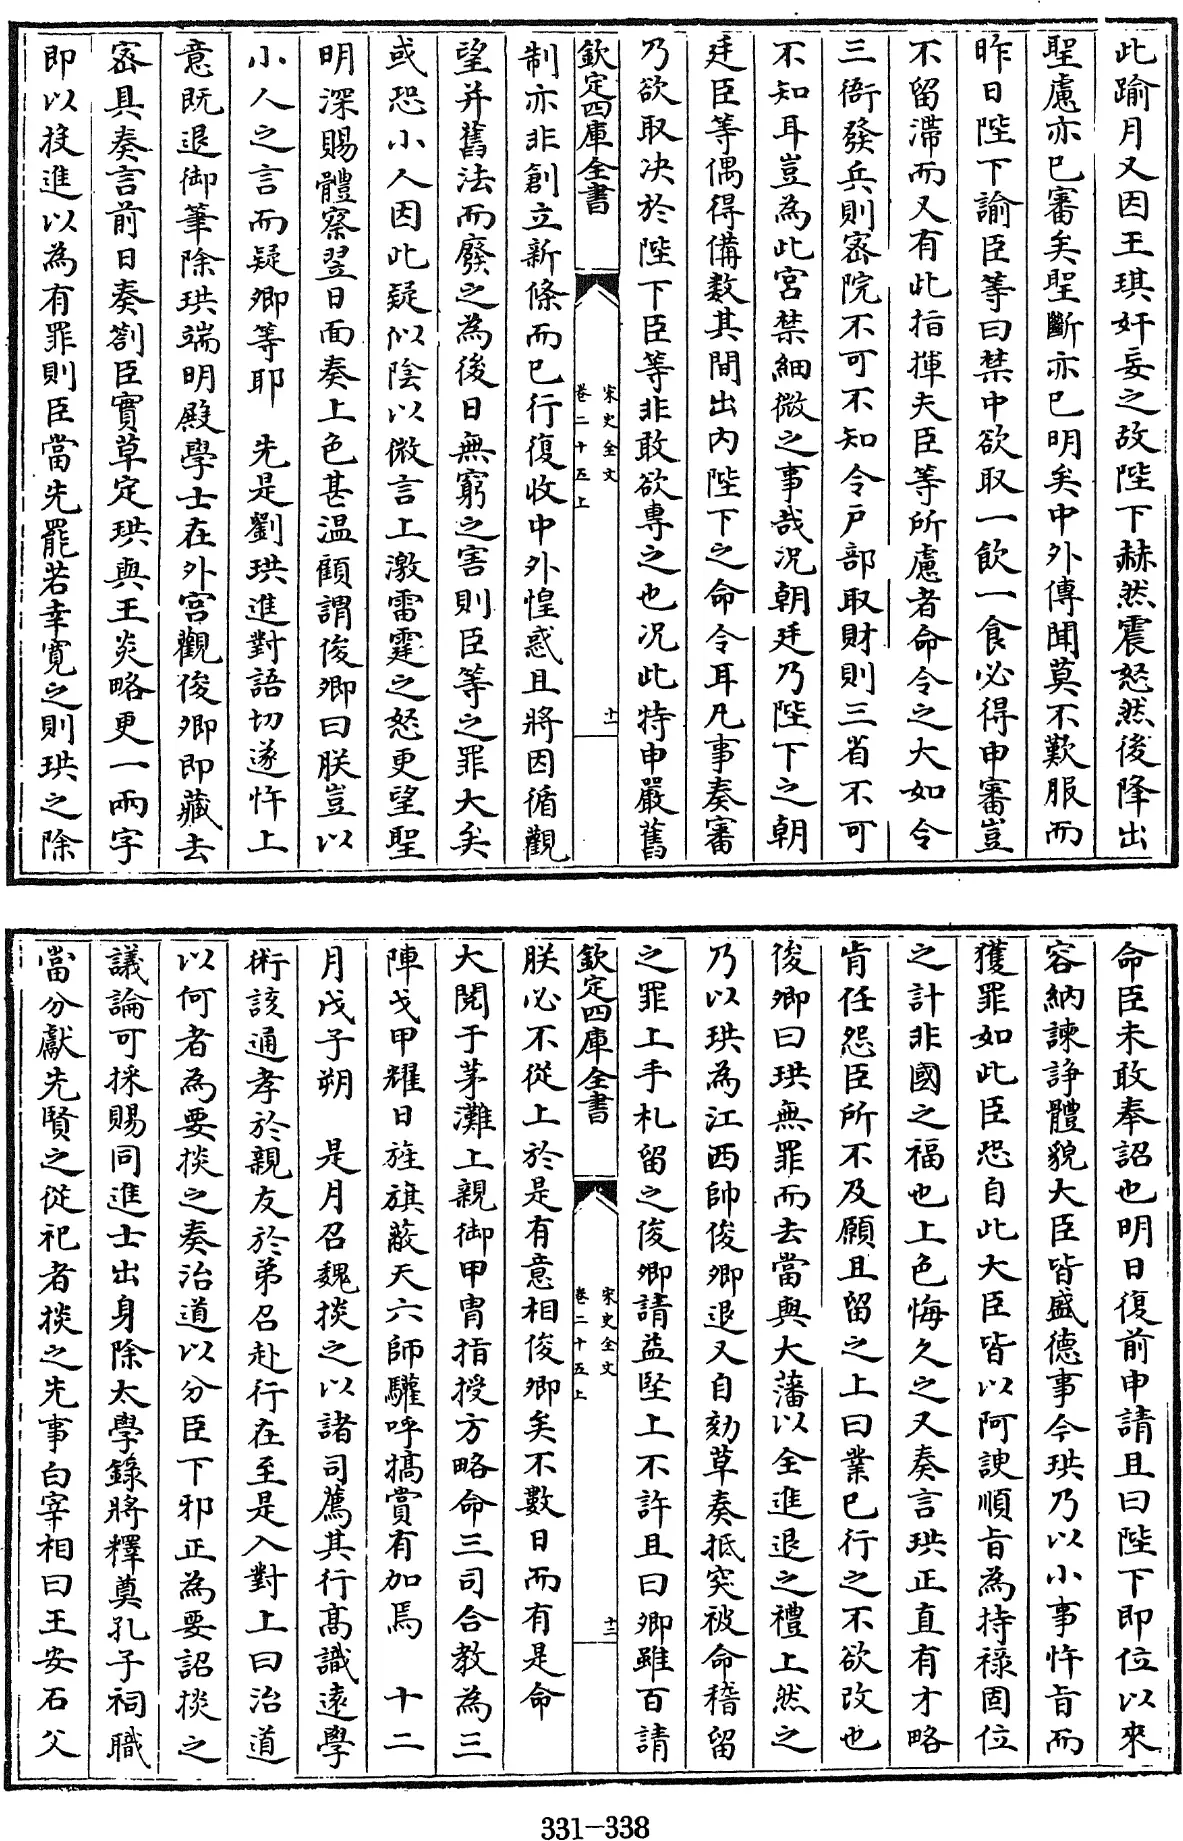 此踰月又因王琪奸妄之故陛下赫然震怒然後降出
聖慮亦已審矣聖斷亦已明矣中外傳聞莫不歎服而
昨日陛下諭臣等曰禁中欲取一飲一食必得申審豈
不留滯而又有此指揮夫臣等所慮者命令之大如令
三衙發兵則宻院不可不知令户部取財則三省不可
不知耳豈為此宫禁細微之事哉况朝廷乃陛下之朝
廷臣等偶得備數其間出内陛下之命令耳凡事奏審
乃欲取决於陛下臣等非敢欲專之也况此特申嚴舊
欽定四庫全書
宋史全文
卷二十五上
十一
制亦非創立新條而已行復收中外惶惑且將因循觀
望并舊法而廢之為後日無窮之害則臣等之罪大矣
或恐小人因此疑似隂以微言上激雷霆之怒更望聖
明深賜體察翌日面奏上色甚温顧謂俊卿曰朕豈以
小人之言而疑卿等耶　先是劉珙進對語切遂忤上
意既退御筆除珙端明殿學士在外宫觀俊卿即藏去
宻具奏言前日奏劄臣實草定珙與王炎略更一兩字
即以投進以為有罪則臣當先罷若幸寛之則珙之除
命臣未敢奉詔也明日復前申請且曰陛下即位以來
容納諫諍體貌大臣皆盛德事今珙乃以小事忤旨而
獲罪如此臣恐自此大臣皆以阿諛順旨為持禄固位
之計非國之福也上色悔久之又奏言珙正直有才略
肯任怨臣所不及願且留之上曰業已行之不欲改也
俊卿曰珙無罪而去當與大藩以全進退之禮上然之
乃以珙為江西帥俊卿退又自劾草奏抵突被命稽留
之罪上手札留之俊卿請益堅上不許且曰卿雖百請
欽定四庫全書
宋史全文
卷二十五上
十二
朕必不從上於是有意相俊卿矣不數日而有是命
大閱于茅灘上親御甲胄指授方略命三司合教為三
陣戈甲耀日旌旗蔽天六師驩呼犒賞有加焉　十二
月戊子朔　是月召魏掞之以諸司薦其行髙識逺學
術該通孝於親友於弟召赴行在至是入對上曰治道
以何者為要掞之奏治道以分臣下邪正為要詔掞之
議論可採賜同進士出身除太學錄將釋奠孔子祠職
當分獻先賢之從祀者掞之先事白宰相曰王安石父
331-338